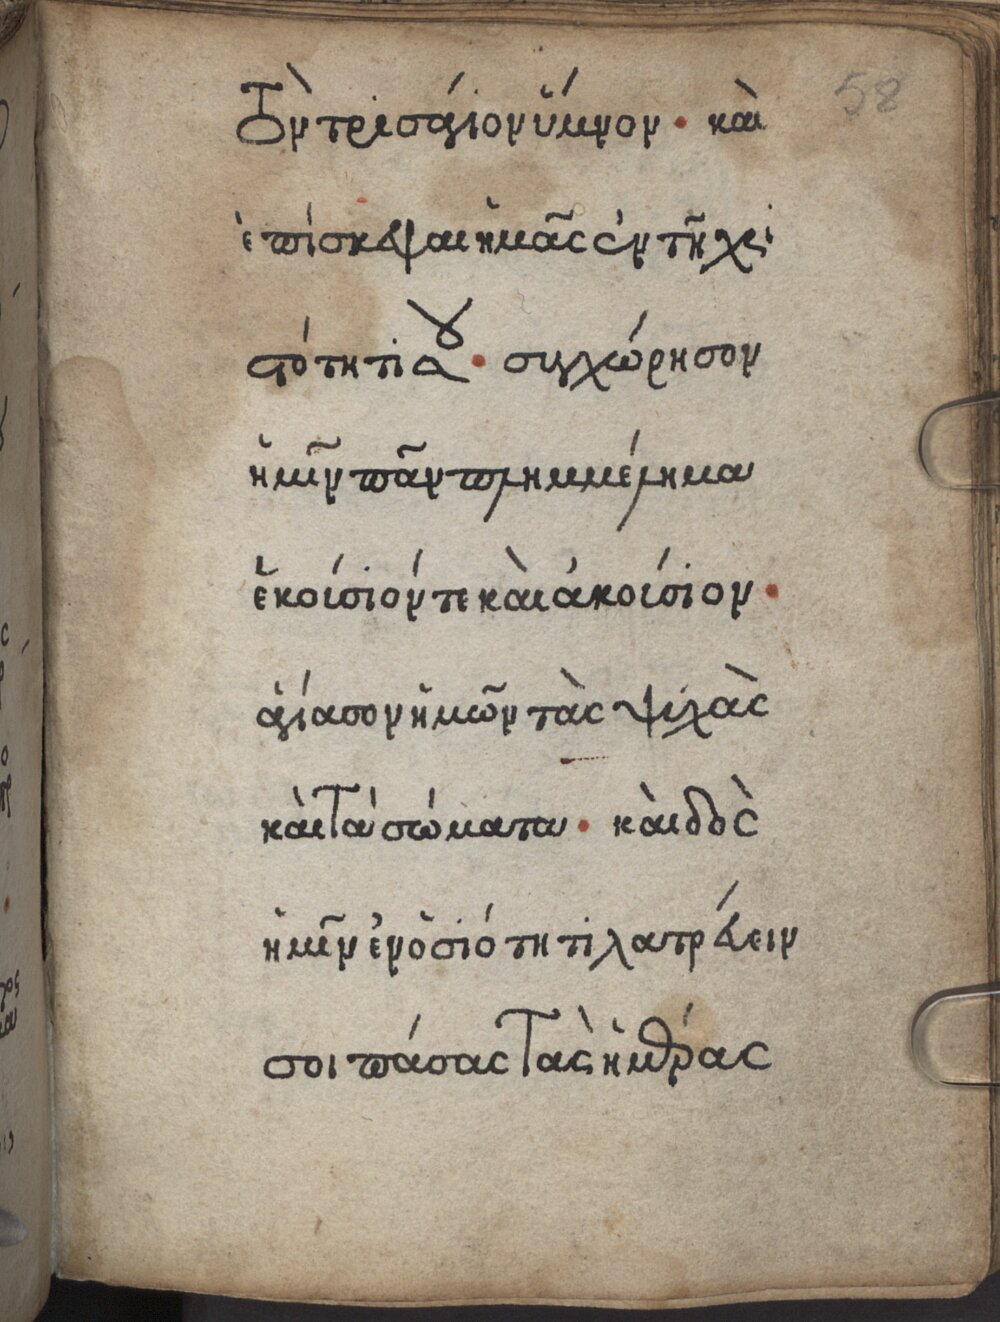 58
Τὸν τρισάγιον ὕμνον · καὶ
ἐπίσκεψαι ἡμᾶς ἐν τῇ χρη
στότητί σου · συγχώρησον
ἡμῖν πᾶν πλημμέλημα
ἑκούσιόν τε καὶ ἀκούσιον ·
ἁγίασον ἡμῶν τὰς ψυχὰς
καὶ τὰ σώματα · καὶ δὸς
ἡμῖν ἐν ὁσιότητι λατρεύειν
σοι πάσας τὰς ἡμέρας